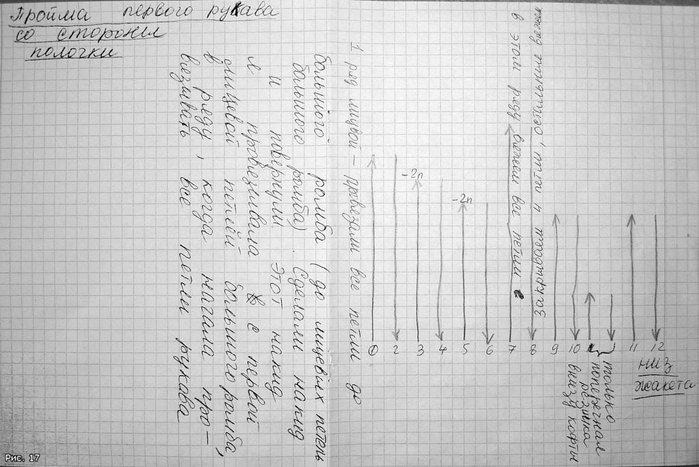 Пройма первого рукава
со стороны
полочки
1 ряд лицевой – провязали все петли до
большого ромба (до лицевых петель
большого ромба). Сделали накид
и повернули. Этот накид
я провязывала с первой
лицевой петлёй большого ромба,
в ряду, когда начала про-
вязывать все петли рукава
-2п
-2п
в этом ряду вяжем все петли
Закрываем 4 петли, остальные вяжем
1 2 3 4 5 6 7 8 9 10 11 12
только
поперечная
резинка
внизу кофты
низ
жакета
Рис. 17